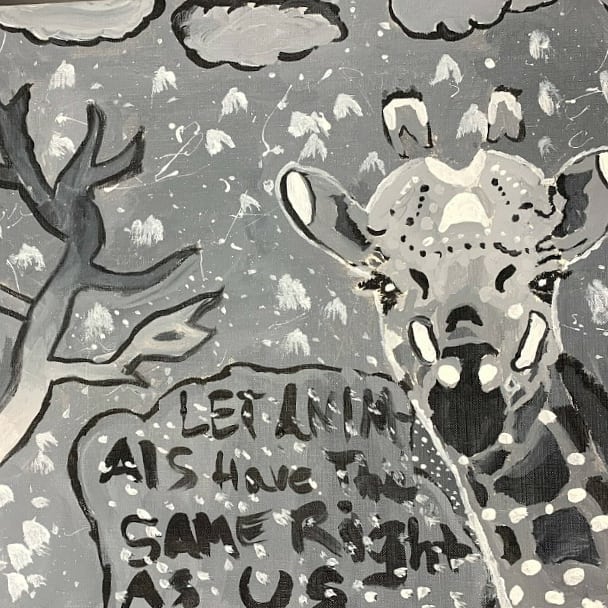 LET ANIM-
AlS Have The
SAME Right
AS US